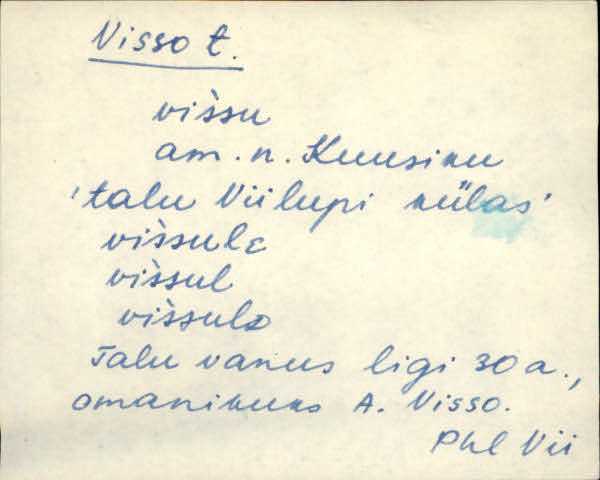 Visso t.
vìssu
am. n. Kuusiku
'talu Viilupi külas'
vìssule
vìssul
vìssulo
Talu vanus ligi 30 a.,
omanikuks A. Visso.
Phl Vii